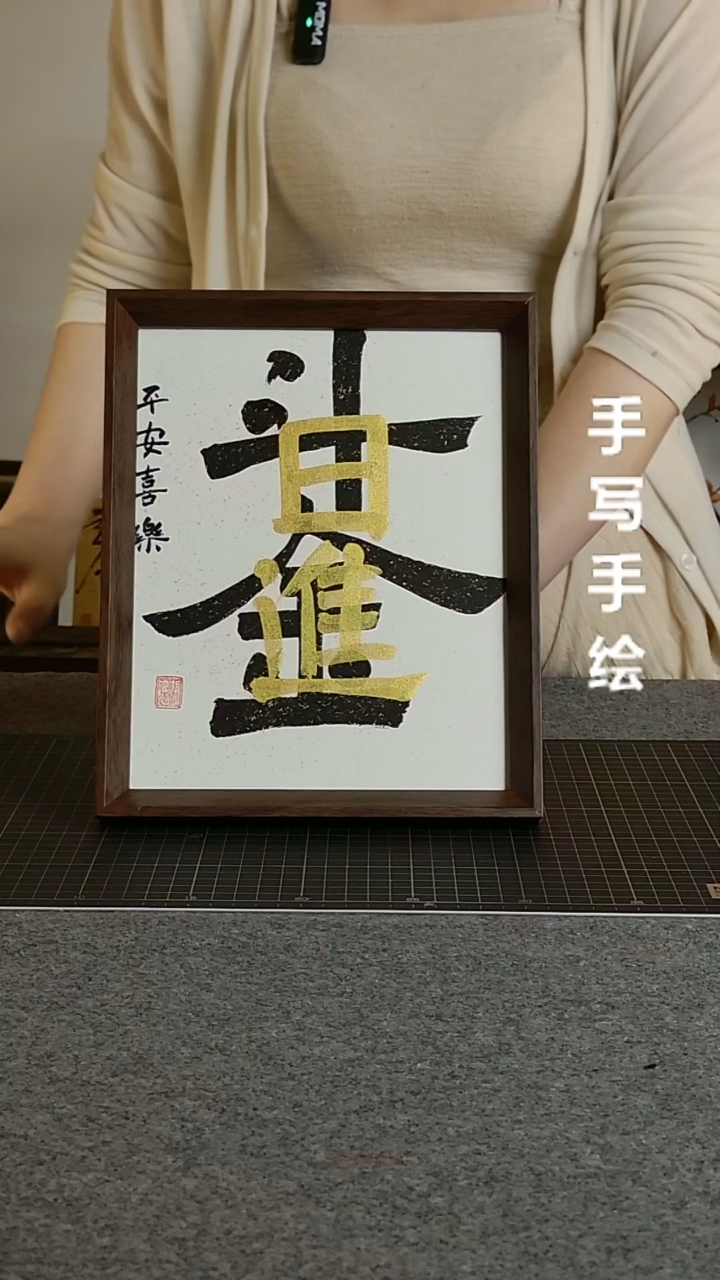 日進斗金
平安喜樂
手写手绘